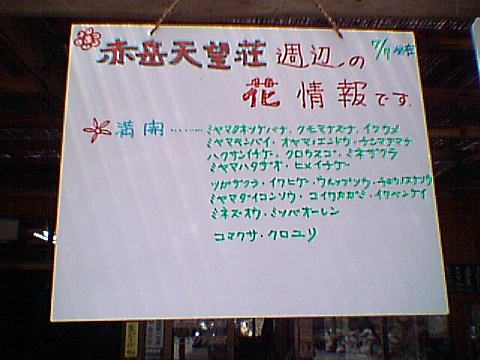 赤岳天望荘 週辺の 7/7 現在
花 情報です
満開……ミヤマタネツケバナ・クモマナズナ・イワウメ
ミヤマキンバイ・オヤマノエンドウ・チシマアマナ
ハクサンイチゲ・クロウスゴ・ミネザクラ
ミヤマハタザオ・ヒメイチゲ
ツガザクラ・イワヒゲ・ウルップソウ・チョウノスケソウ
ミヤマダイコンソウ・コイワカガミ・イワベンケイ
ミネズオウ・ミツバオーレン
コマクサ・クロユリ